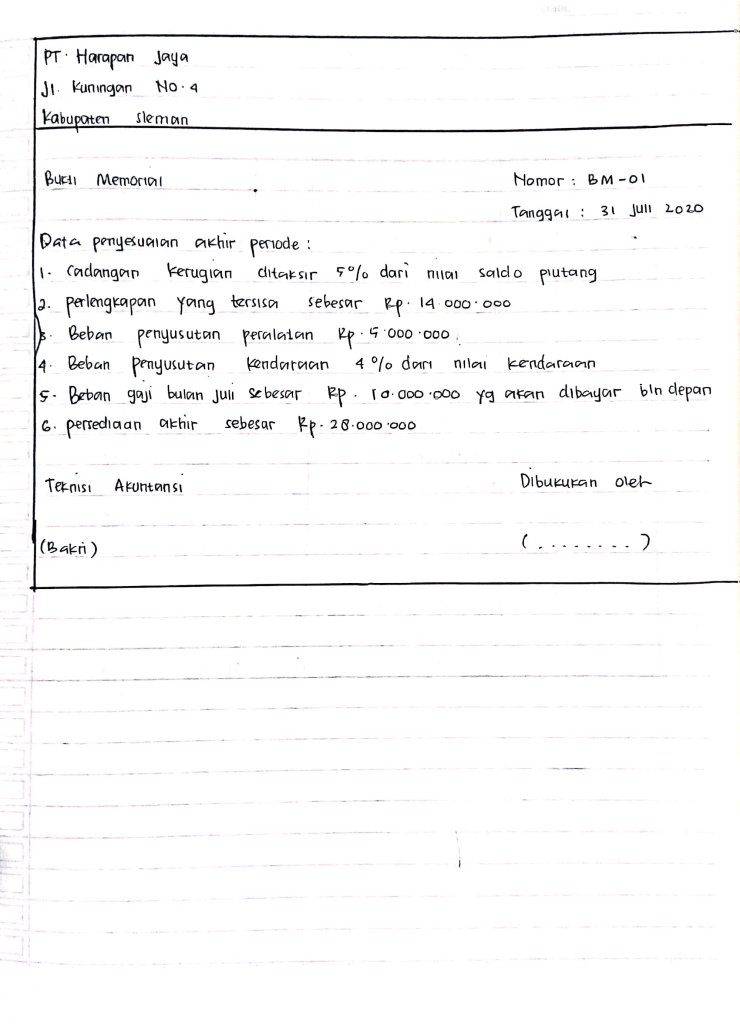 PT. Harapan Jaya
Jl. Kuningan No. 4
Kabupaten Sleman
Bukti Memorial
Nomor : BM-01
Tanggal : 31 Juli 2020
Data penyesuaian akhir periode :
1. Cadangan kerugian ditaksir 5% dari nilai saldo piutang
2. perlengkapan yang tersisa sebesar Rp. 14.000.000
3. Beban penyusutan peralatan Rp. 5.000.000.
4. Beban penyusutan kendaraan 4% dari nilai kendaraan
5. Beban gaji bulan juli sebesar Rp. 10.000.000 yg akan dibayar bln depan
6. persediaan akhir sebesar Rp. 28.000.000
Teknisi Akuntansi
Dibukukan oleh
(Bakri)
(.........)